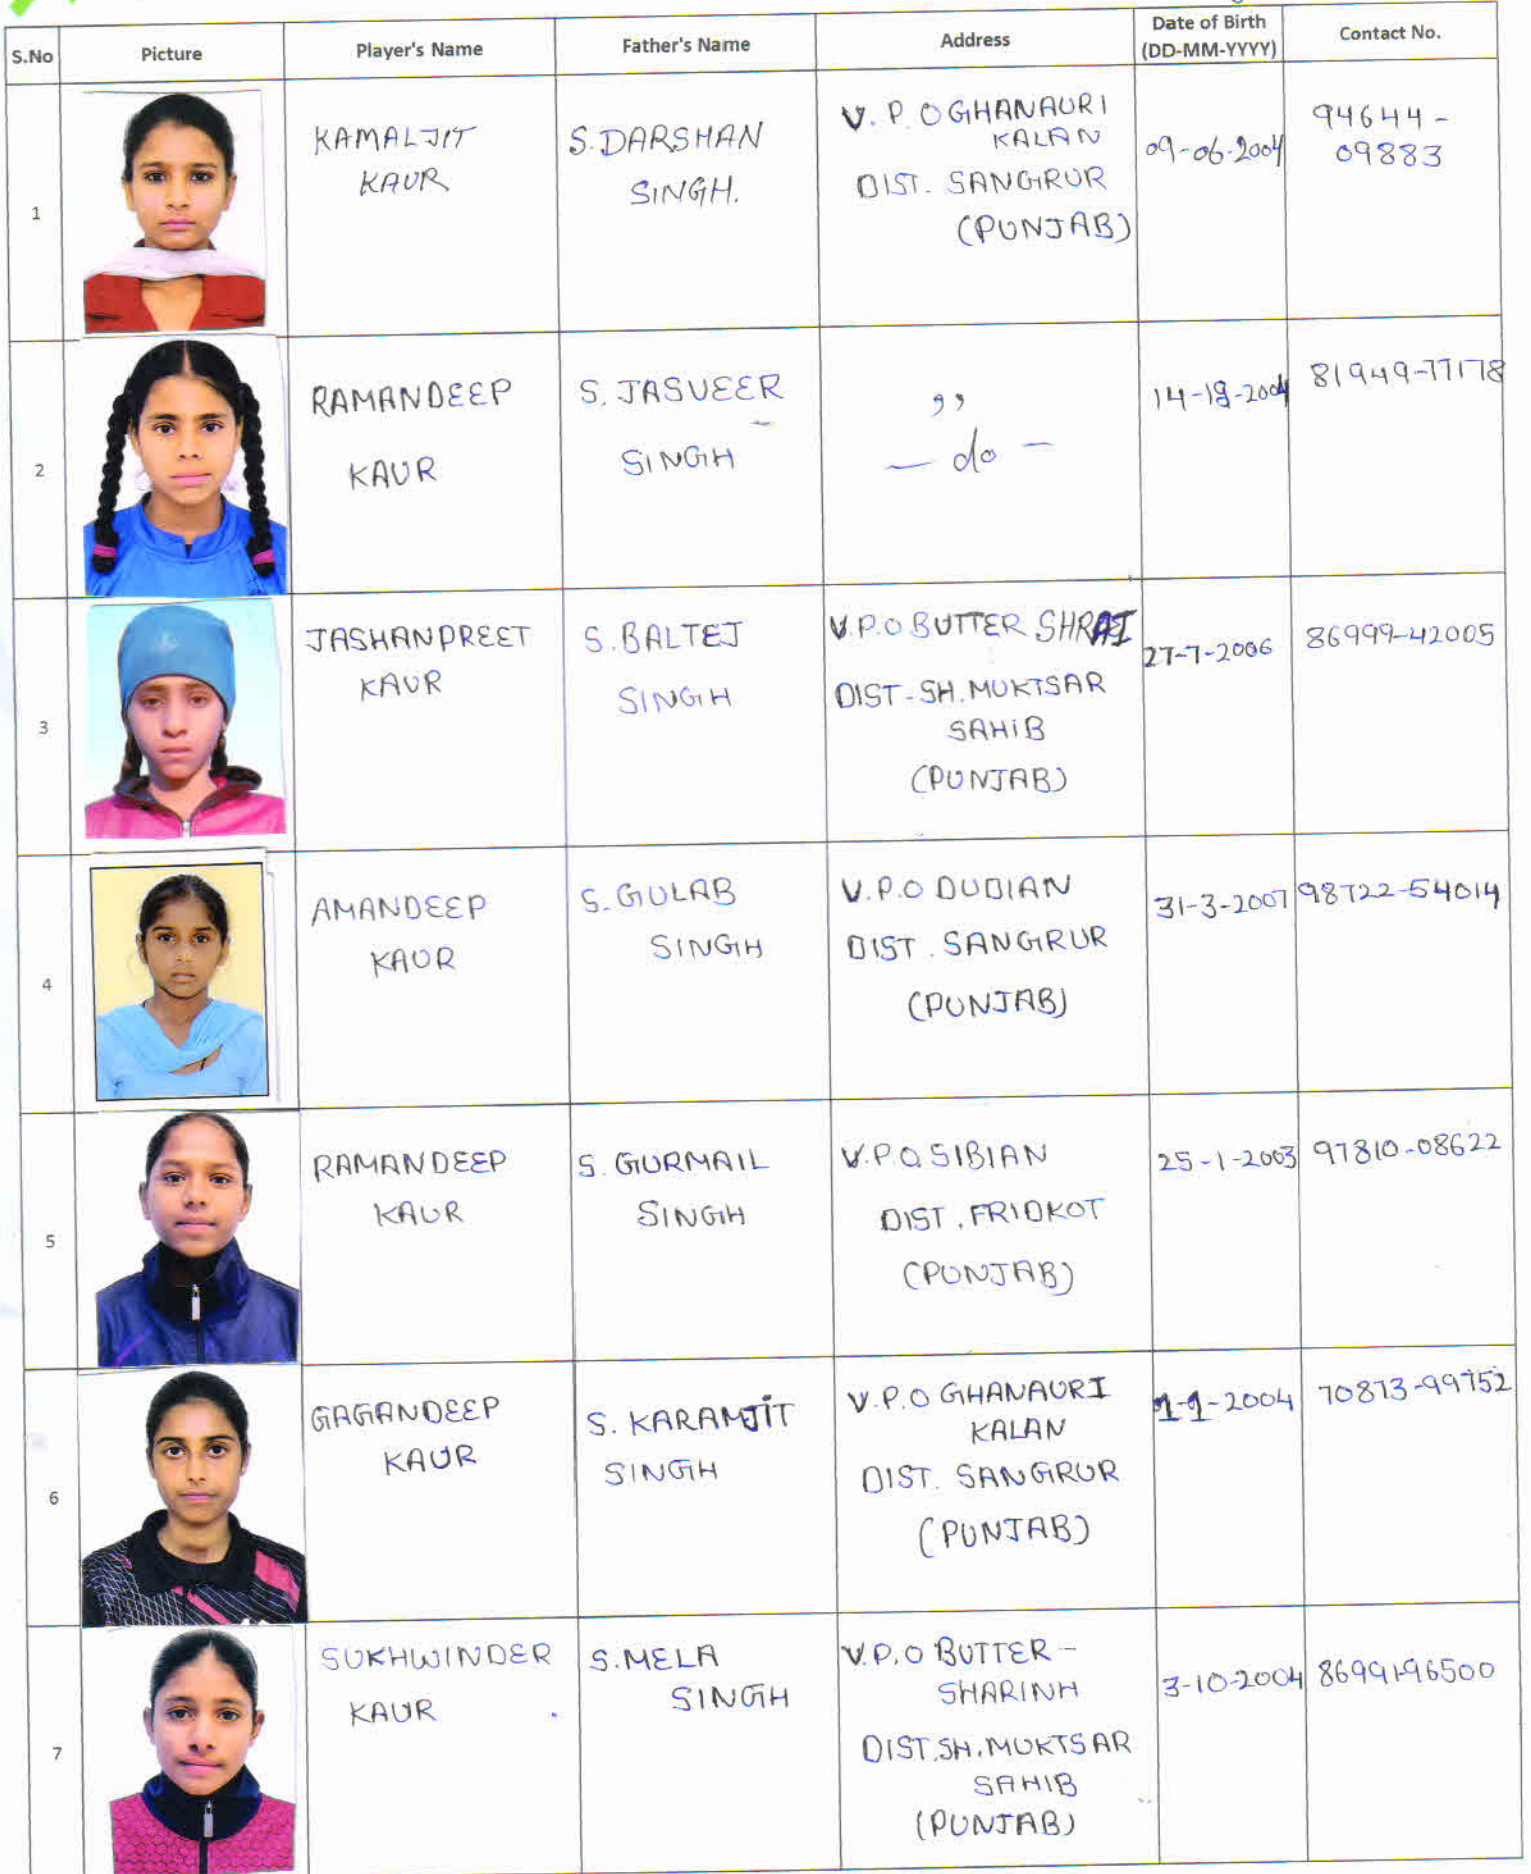 S.No Picture Player's Name Father's Name Address Date of Birth Contact No.
(DD-MM-YYYY)
1
KAMALJIT
KAUR
S. DARSHAN
SINGH.
V. P. O GHANAURI
KALAN
DIST. SANGRUR
(PUNJAB)
09-06-2004
94644-
09883
2
RAMANDEEP
KAUR
S. JASVEER
SINGH
,,
— do —
2004
81949-77178
3
JASHANPREET
KAUR
S. BALTEJ
SINGH
V.P.O BUTTER
DIST-SH. MUKTSAR
SAHIB
(PUNJAB)
27-7-2006
86999-42005
4
AMANDEEP
KAUR
S. GULAB
SINGH
V.P.O DUDIAN
DIST. SANGRUR
(PUNJAB)
31-3-2007
98722-54014
5
RAMANDEEP
KAUR
S. GURMAIL
SINGH
V.P.O SIBIAN
DIST. FRIDKOT
(PUNJAB)
25-1-2003
97810-08622
6
GAGANDEEP
KAUR
S. KARAMJIT
SINGH
V.P.O GHANAURI
KALAN
DIST. SANGRUR
(PUNJAB)
2004
70873-99752
7
SUKHWINDER
KAUR
S. MELA
SINGH
V.P.O BUTTER-
SHARINH
DIST. SH. MUKTSAR
SAHIB
(PUNJAB)
3-10-2004
86991-96500